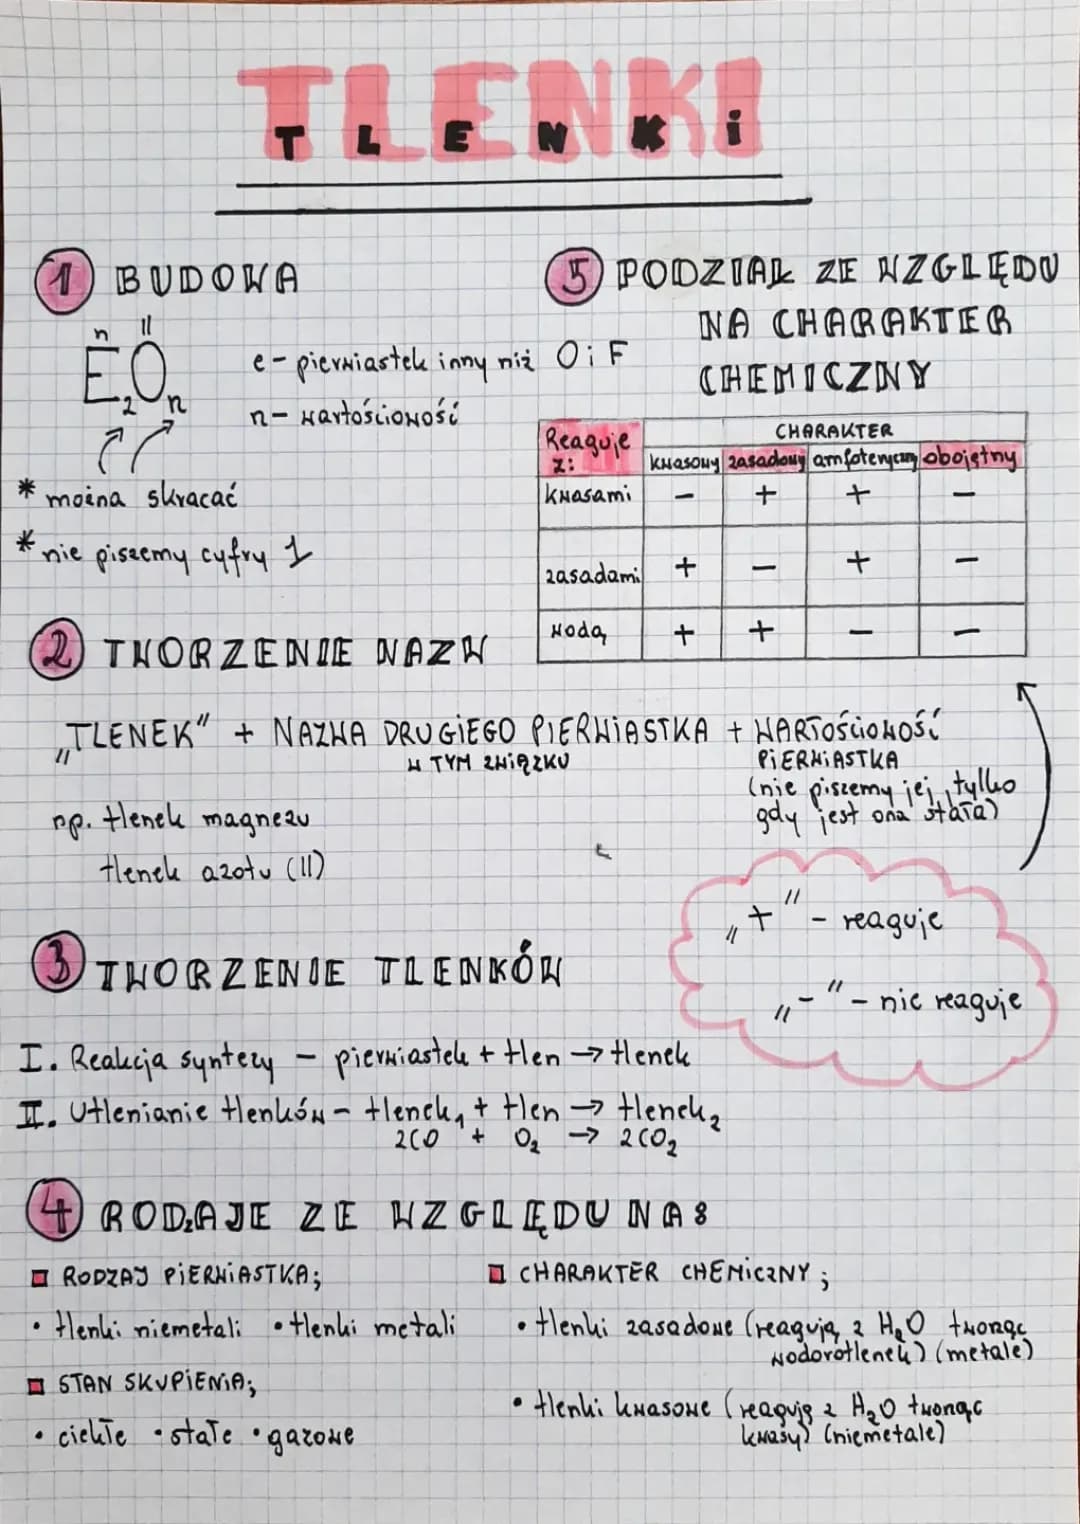 TLENKI
TLENKi
1 BUDOWA
n II
E₂Oₙ
e - pierwiastek inny niż O i F
n - wartościowość
* można skracać
* nie piszemy cyfry 1
5 PODZIAŁ ZE WZGLĘDU
NA CHARAKTER
CHEMICZNY
Reaguje z: CHARAKTER
kwasowy zasadowy amfoteryczny obojętny
kwasami - + + -
zasadami + - + -
wodą + + - -
2 TWORZENIE NAZW
„TLENEK" + NAZWA DRUGiEGO PiERWiASTKA + WARTOŚCiOWOŚĆ
W TYM ZWiĄZKU PiERWiASTKA
(nie piszemy jej, tylko
gdy jest ona stała)
np. tlenek magnezu
tlenek azotu (II)
„+" - reaguje
„-" - nie reaguje
3 TWORZENIE TLENKÓW
I. Reakcja syntezy - pierwiastek + tlen → tlenek
II. Utlenianie tlenków - tlenek₁ + tlen → tlenek₂
2CO + O₂ → 2CO₂
4 RODZAJE ZE WZGLĘDU NA:
RODZAJ PiERWiASTKA;
• tlenki niemetali • tlenki metali
STAN SKUPiENiA;
• ciekłe • stałe • gazowe
CHARAKTER CHEMiCZNY;
• tlenki zasadowe (reagują z H₂O tworząc
wodorotlenek) (metale)
• tlenki kwasowe (reagują z H₂O tworząc
kwasy) (niemetale)